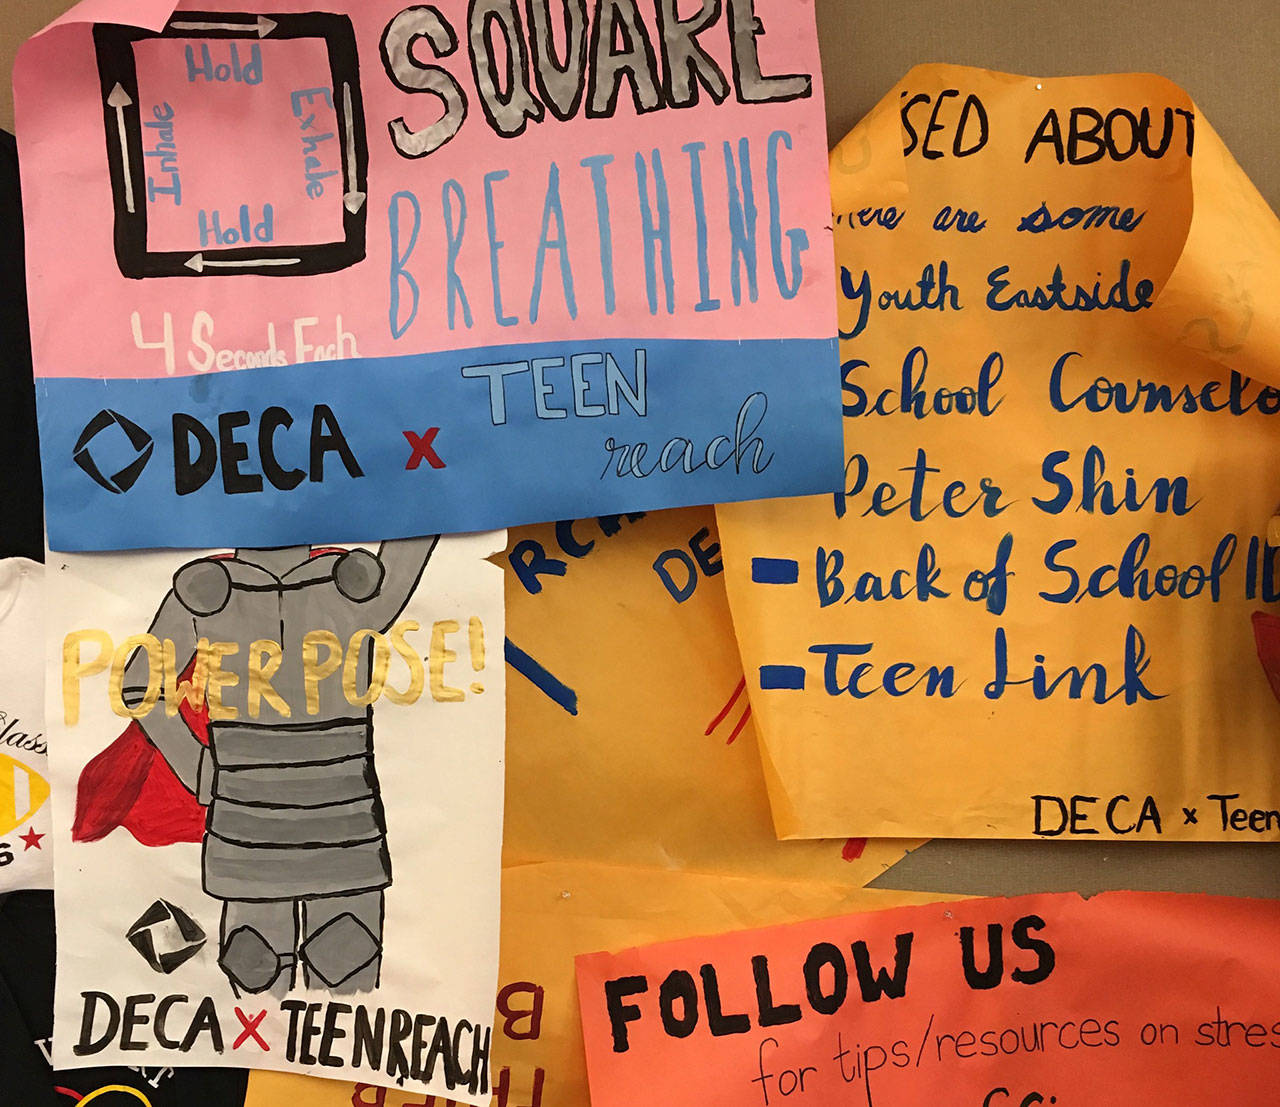 SQUARE
BREATHING
Hold
Inhale
Exhale
Hold
4 Seconds Each
DECA x TEEN reach
POWER POSE!
DECA X TEEN REACH
SED ABOUT
here are some
Youth Eastside
School Counselo
Peter Shin
- Back of School ID
- Teen Link
DECA x Teen
RCH
DE
FOLLOW US
for tips/resources on stres
lass
B